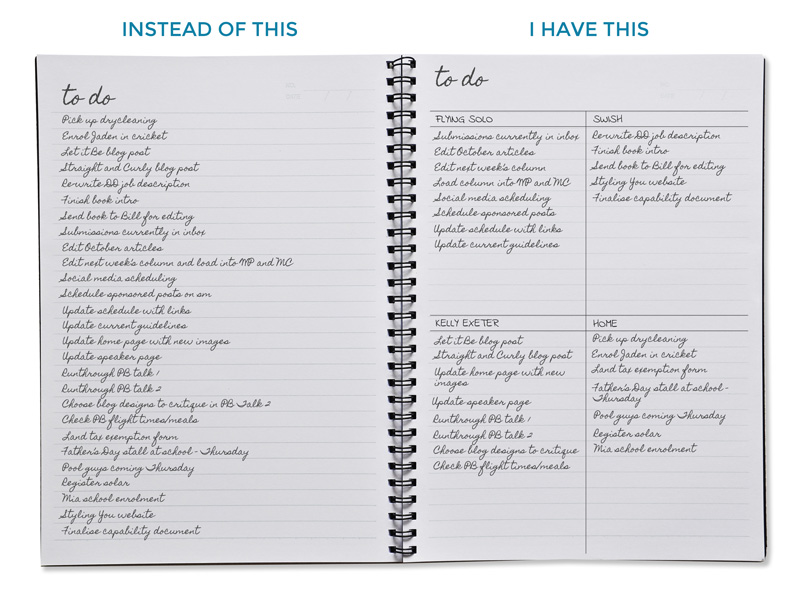 INSTEAD OF THIS
to do
Pick up drycleaning
Enrol Jaden in cricket
Let it Be blog post
Straight and Curly blog post
Re-write DD job description
Finish book intro
Send book to Bill for editing
Submissions currently in inbox
Edit October articles
Edit next week's column and load into MP and MC
Social media scheduling
Schedule sponsored posts on sm
Update schedule with links
Update current guidelines
Update home page with new images
Update speaker page
Runthrough PB talk 1
Runthrough PB talk 2
Choose blog designs to critique in PB Talk 2
Check PB flight times/meals
Land tax exemption form
Father's Day stall at school - Thursday
Pool guys coming Thursday
Register solar
Mia school enrolment
Styling You website
Finalise capability document
I HAVE THIS
to do
FLYING SOLO
Submissions currently in inbox
Edit October articles
Edit next week's column
Load column into MP and MC
Social media scheduling
Schedule sponsored posts
Update schedule with links
Update current guidelines
SWISH
Re-write DD job description
Finish book intro
Send book to Bill for editing
Styling You website
Finalise capability document
KELLY EXETER
Let it Be blog post
Straight and Curly blog post
Update home page with new
images
Update speaker page
Runthrough PB talk 1
Runthrough PB talk 2
Choose blog designs to critique
Check PB flight times/meals
HOME
Pick up drycleaning
Enrol Jaden in cricket
Land tax exemption form
Father's Day stall at school -
Thursday
Pool guys coming Thursday
Register solar
Mia school enrolment